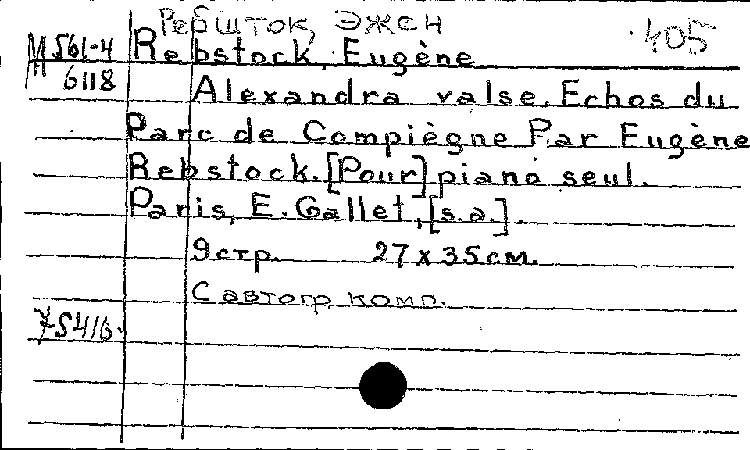 Ребшток, Эжен
405
М 561-4 Rebstock, Eugène
6118
Alexandra valse. Echos du
Parc de Compiègne Par Eugène
Rebstock. [Pour] piano seul.
Paris, E. Gallet, [s.a.].
9стр. 27 x 35см.
С автогр. комп.
75416.